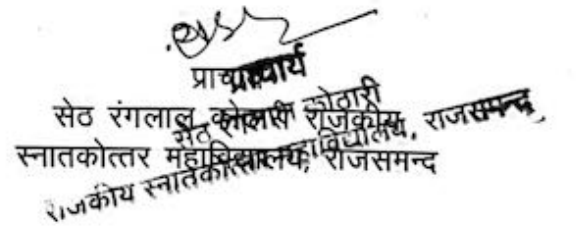 प्राचार्य
सेठ रंगलाल कोठारी राजकीय
स्नातकोत्तर महाविद्यालय, राजसमन्द
प्राचार्य
सेठ रंगलाल कोठारी
राजकीय स्नातकोत्तर महाविद्यालय, राजसमन्द